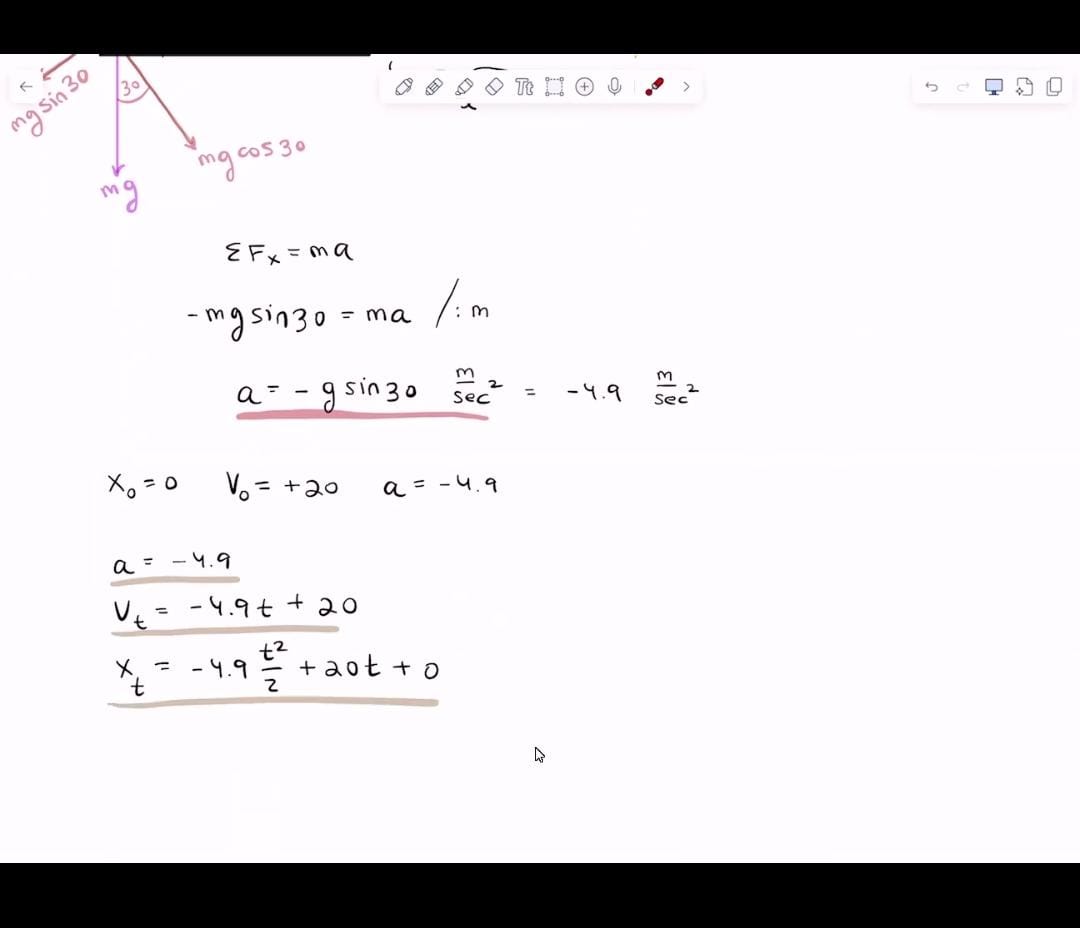 mg sin30
30
mg cos30
mg
Tt
ΣFx = ma
-mg sin30 = ma /: m
a = - g sin30 m/sec² = -4.9 m/sec²
x₀ = 0 V₀ = +20 a = -4.9
a = -4.9
Vt = -4.9t + 20
xt = -4.9 t²/2 + 20t + 0